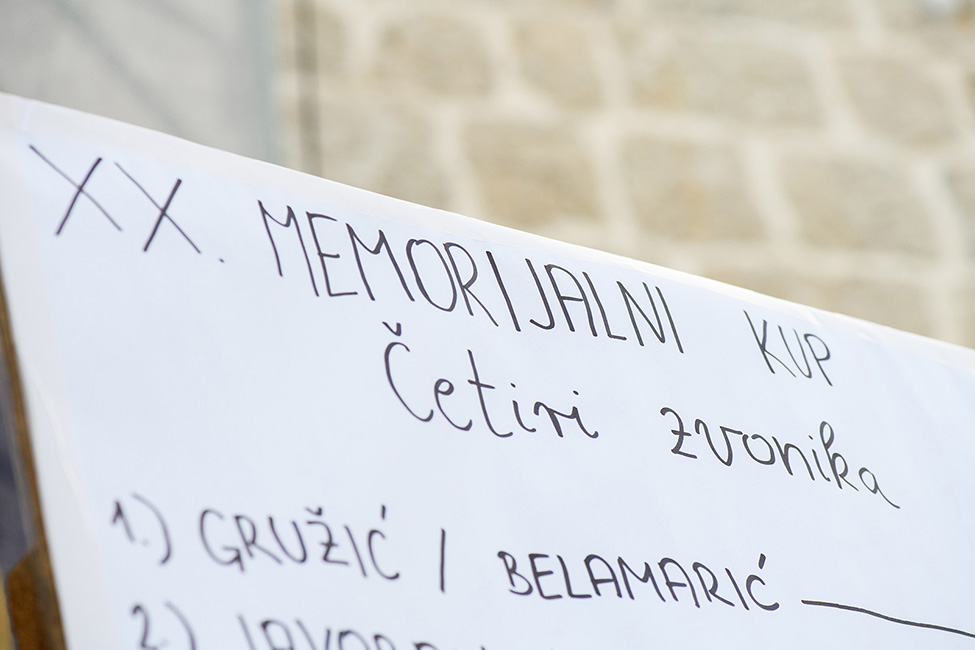 XX. MEMORIJALNI KUP
Četiri zvonika
1.) GRUŽIĆ / BELAMARIĆ
2.)